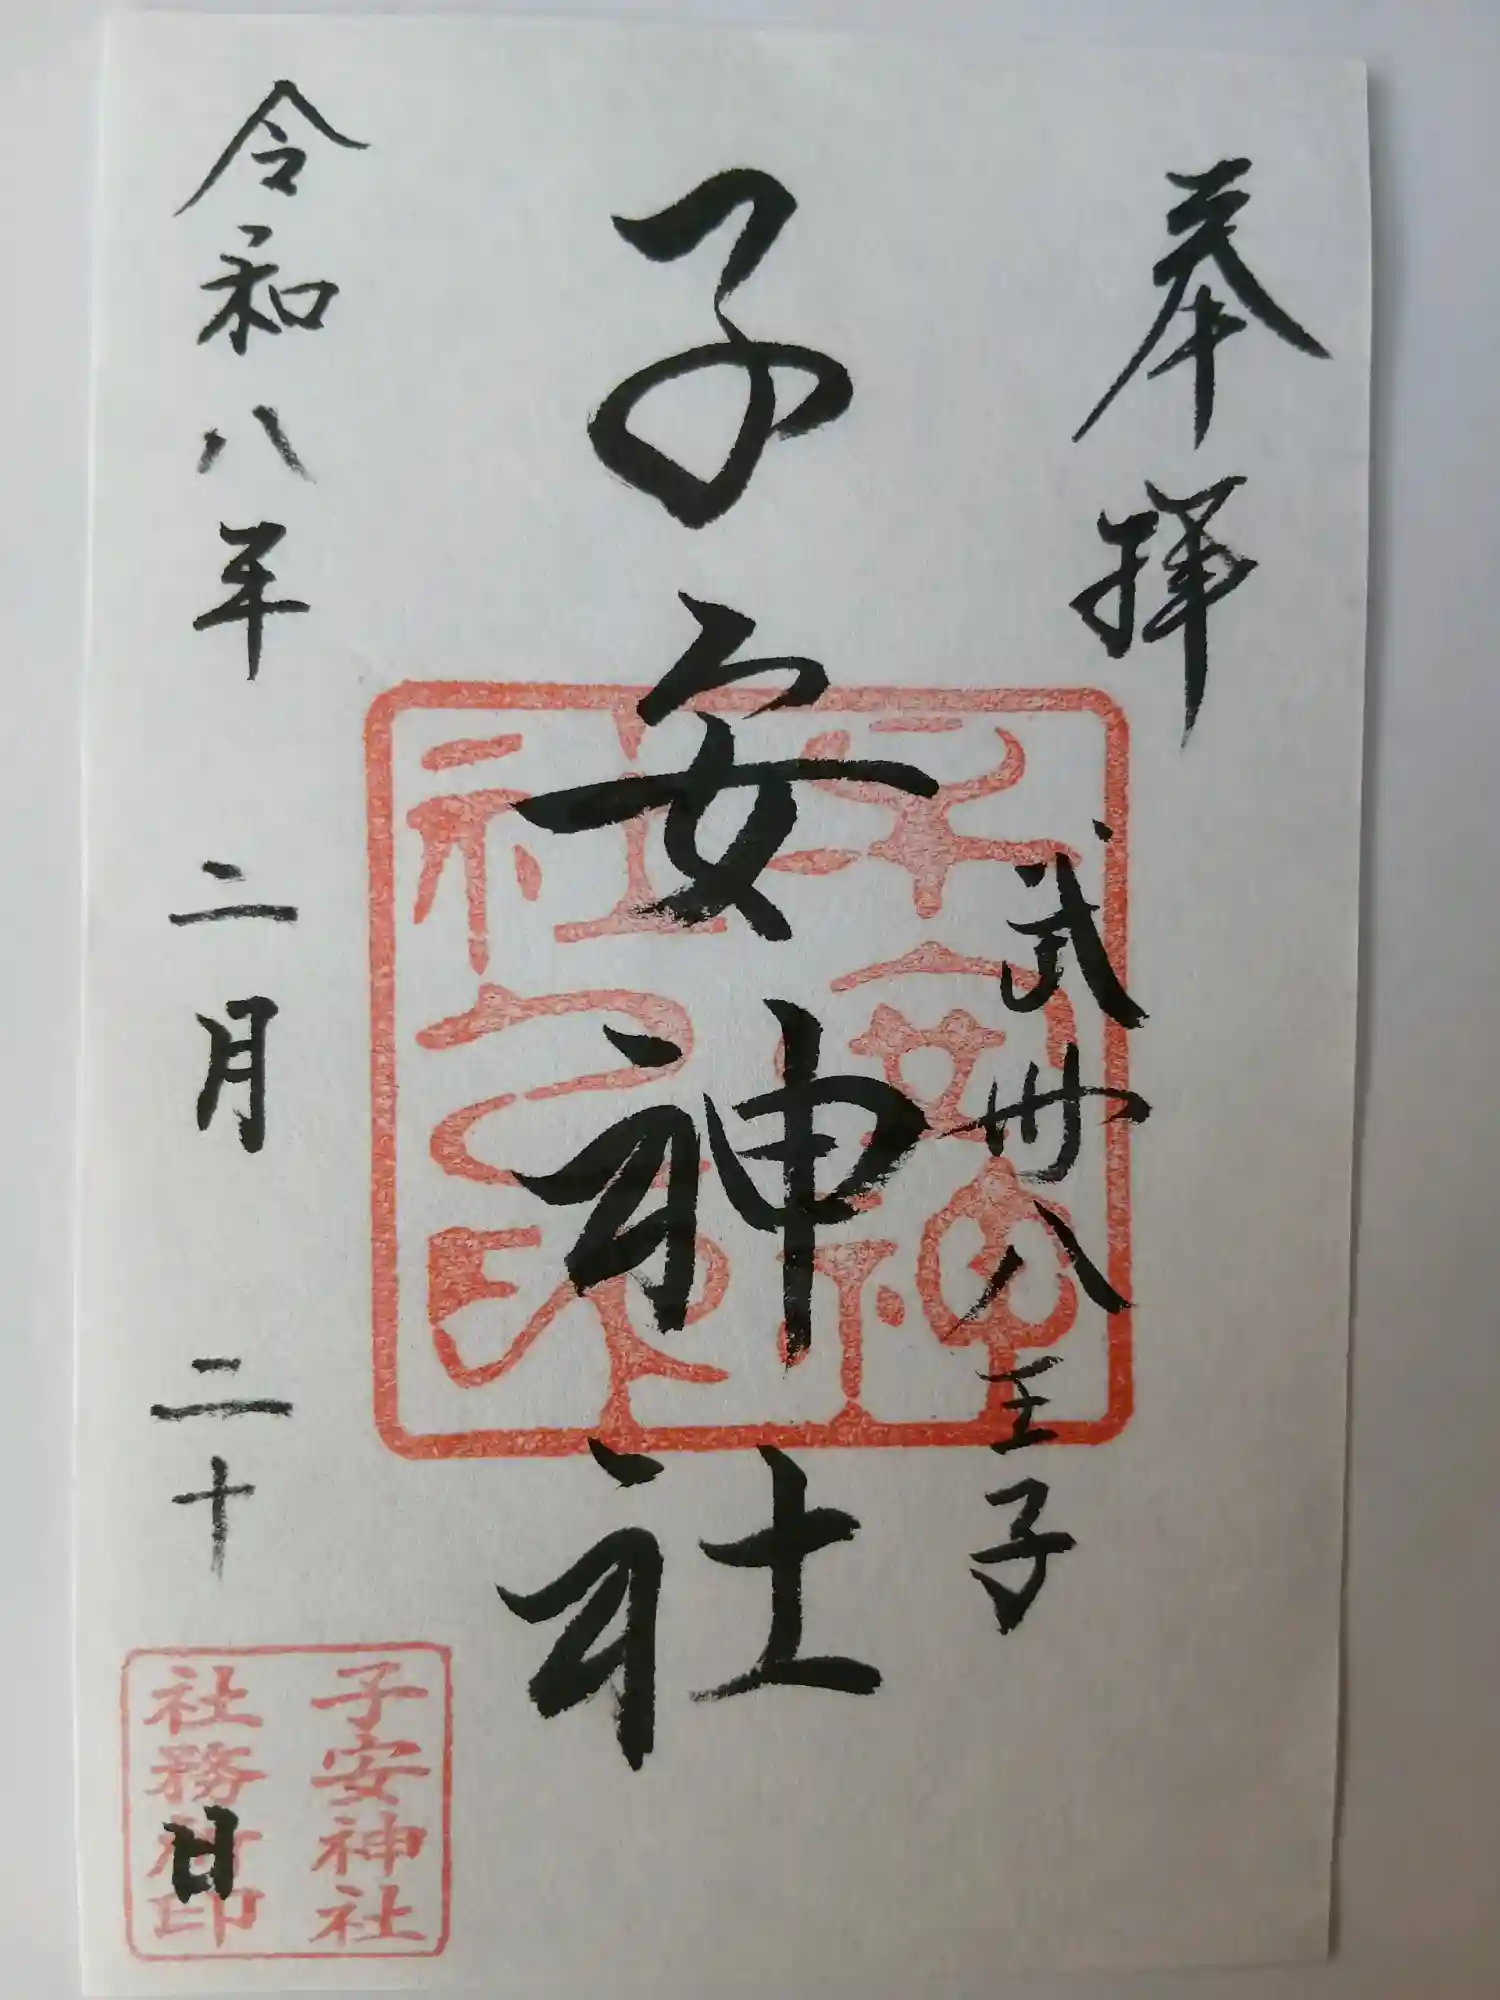 奉拝
武州八王子
子安神社
令和八年二月二十日
子安神社之印
子安神社
社務所印